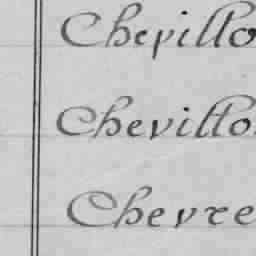 Chevillo
Chevillo
Chevre